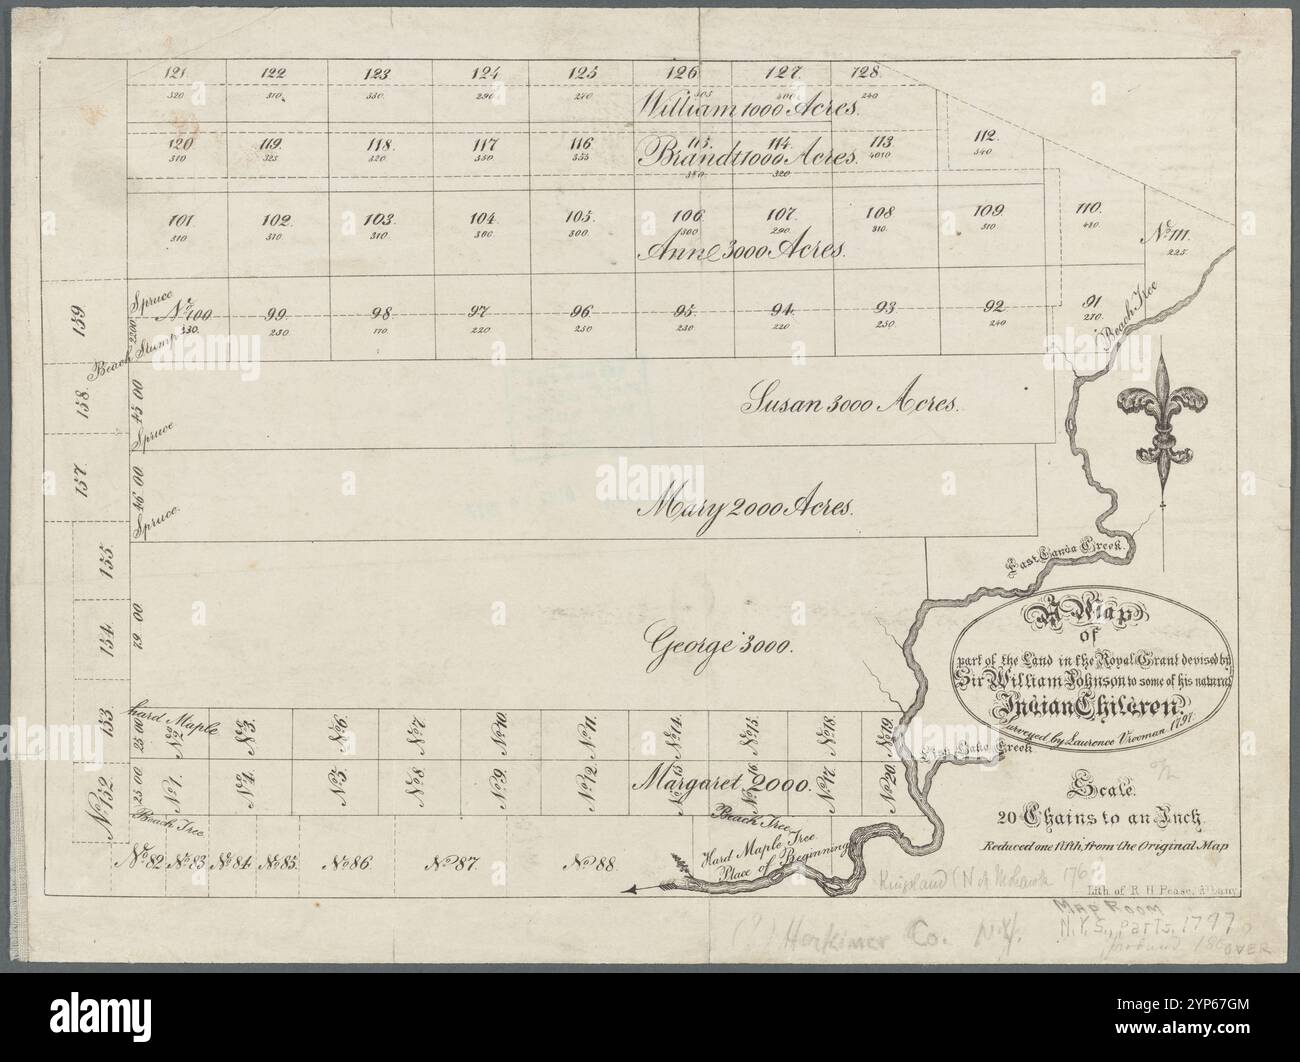 121 122 123 124 125 126 127. 128.
320 310 330 290 270 303 400 240
William 1000 Acres.
120 119. 118. 117 116 115. 114. 113. 112.
310 325 320 350 355 340
Brandt 1000 Acres.
320
101 102. 103. 104. 105. 106. 107. 108 109. 110. No. 111.
310 310 310 300 300. 300 290. 310. 310 225
Anne 3000 Acres.
Spruce
No. 100 99 98. 97. 96. 95. 94. 93 92. 91
330. 250 220 250 250 220 250. 240 210.
2200
Beach Stump
Beach Tree
159.
158.
45 00
Susan 3000 Acres.
Spruce
157.
46 00
Mary 2000 Acres.
Spruce.
155
East Canda Creek.
154.
79 00
George 3000.
A Map
of
part of the Land in the Royal Grant devised by
Sir William Johnson to some of his natural
Indian Children.
surveyed by Laurence Vrooman 1797.
hard Maple
153
25 00
No. 2. No. 3. No. 6. No. 7. No. 10. No. 11. No. 14. No. 15. No. 18. No. 19.
Creek
No. 152
25 00
No. 1. No. 4. No. 5. No. 8 No. 9. No. 12. No. 16 No. 17. No. 20.
Margaret 2000.
Beach Tree.
Beach Tree.
Scale.
20 Chains to an Inch.
Reduced one fifth, from the Original Map
No. 82 No. 83 No. 84 No. 85. No. 86. No. 87. No. 88.
Hard Maple Tree
Place of Beginning
Lith. of R. H. Pease, Albany.
(?) Herkimer Co. N.Y.
Map Room
N.Y.S., parts, 1797
OVER
alamy
alamy
Image ID: 2YP67GM
www.alamy.com